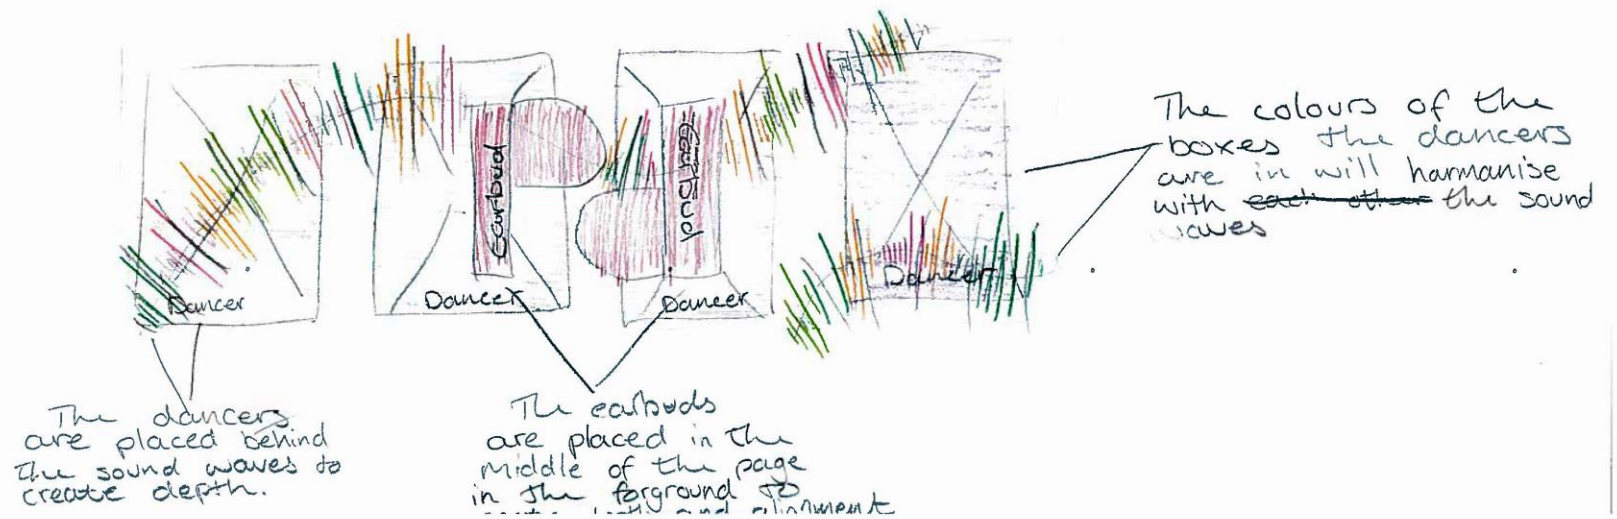 earbud
earbud
Dancer
Dancer
Dancer
Dancer
The colours of the
boxes the dancers
are in will harmanise
with each other the sound
waves
The dancers
are placed behind
The sound waves to
create depth.
The earbuds
are placed in the
middle of the page
in the forground to
and alinment